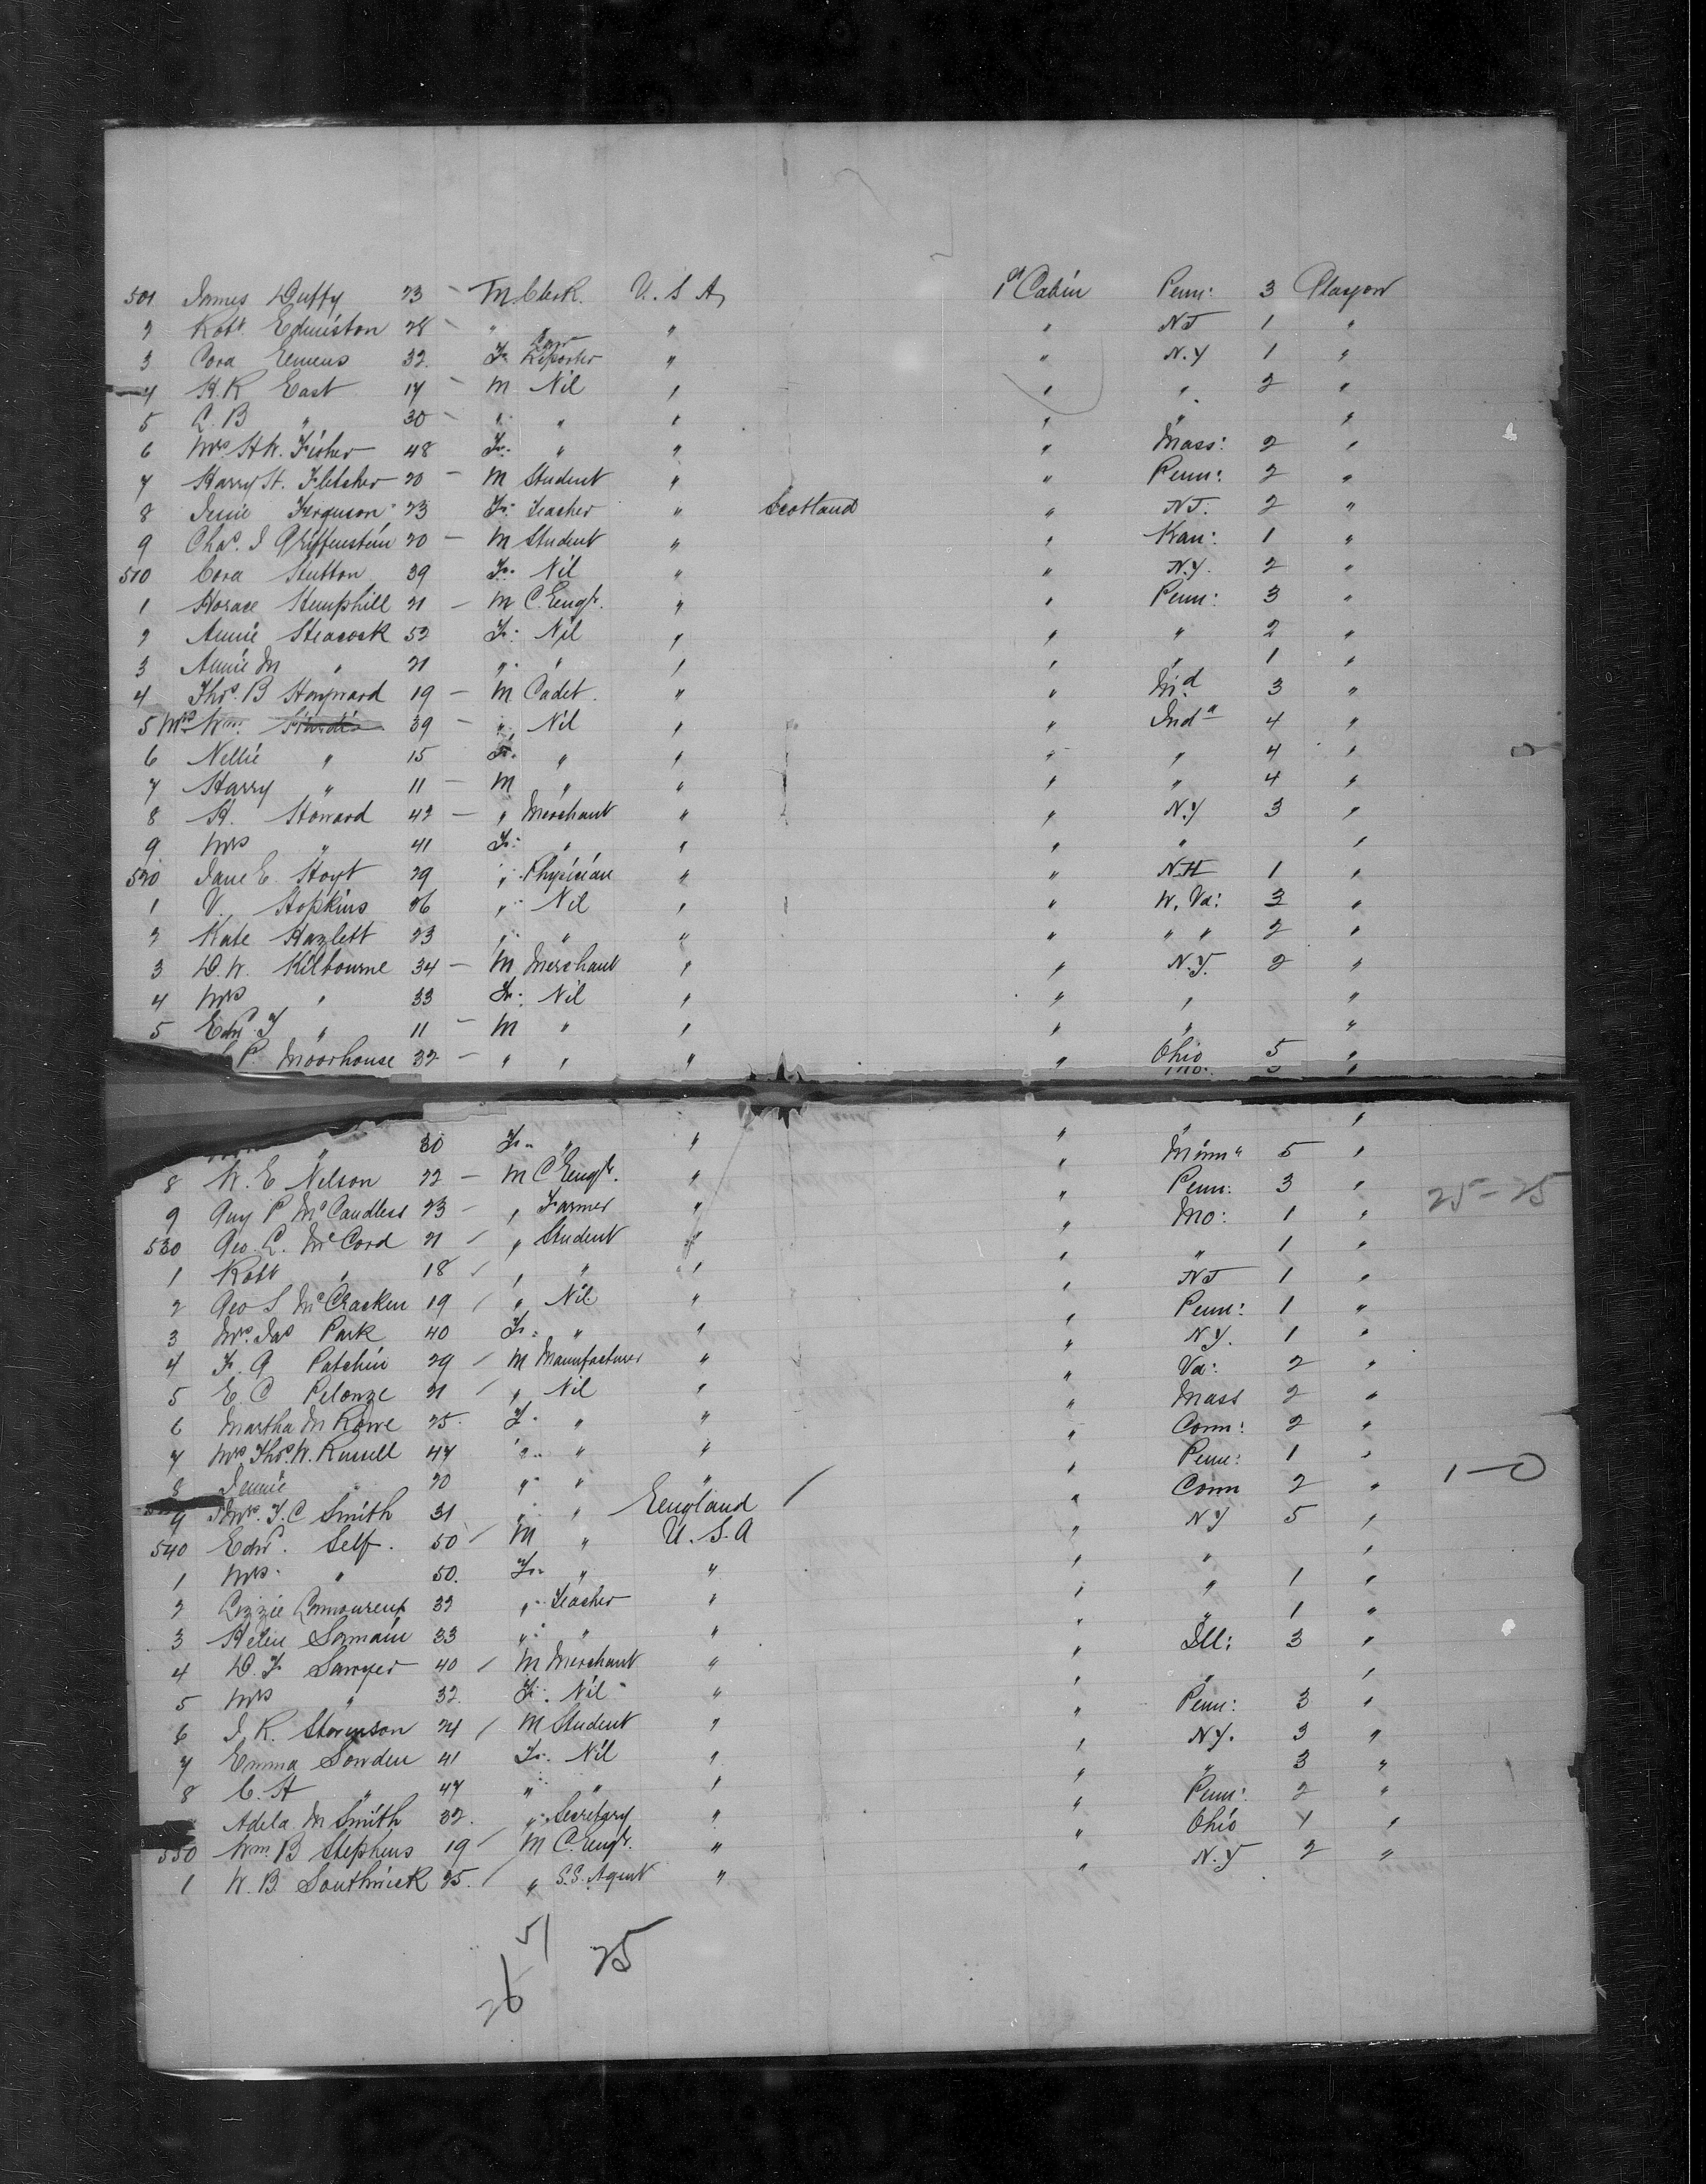 501 James Duffy 23 – M Clerk. U. S. A. 1st Cabin Penn: 3 Glasgow
2 Robt. Edmiston 28 – " " " " N J 1 "
3 Cora Emens 32. F. Reporter " " N.Y 1 "
4 H. R East 17 – M Nil " " " 2 "
5 L. B " 30 – " " " " " "
6 Mrs H W. Fisher 48 F. " " " Mass: 2 "
7 Harry H. Fletcher 20 – M Student " " Penn: 2 "
8 Jessie Ferguson 23 F. Teacher " Scotland " N J. 2 "
9 Chas. I Griffenstein 20 – M Student " " Kan: 1 "
510 Cora Hutton 39 F. Nil " " N.Y. 2 "
1 Horace Hemphill 21 – M C. Engr. " " Penn: 3 "
2 Annie Heacock 52 F: Nil " " " 2 "
3 Annie M " 21 " " " " " 1 "
4 Thos. B Hayward 19 – M Cadet. " " Md 3 "
5 Mrs Wm. 39 – " Nil " " Inda 4 "
6 Nellie " 15 F. " " " " 4 "
7 Harry " 11 – M " " " " 4 "
8 H. Howard 42 – " Merchant " " N.Y 3 "
9 Mrs " 41 F. " " " " "
520 Jane E. Hoyt 29 " Physician " " N.H 1 "
1 V. Hopkins 26 " Nil " " W. Va: 3 "
2 Kate Hazlett 23 " " " " " " 2 "
3 D. W. Kilbourne 34 – M Merchant " " N.Y. 2 "
4 Mrs " 33 F. Nil " " " "
5 Edwd. J " 11 – M " " " " "
P. Moorhouse 32 – " " " " Ohio 5 "
" 30 F. " " " " "
8 W. E Nelson 22 – M C Engr. " " Minn" 5 "
9 Guy P McCandless 23 – " Farmer " " Penn: 3 " 25 – 25
530 Geo. L. McCord 21 / " Student " " Mo: 1 "
1 Robt " 18 / " " " " " 1 "
2 Geo S McCracken 19 / " Nil " " N J 1 "
3 Mrs. Jas Park 40 F. " " " Penn: 1 "
4 F. A Patchin 29 / M Manufacturer " " N Y. 1 "
5 E. C Pelouze 21 / " Nil " " Va: 2 "
6 Martha M Rowe 25. F. " " " Mass 2 "
7 Mrs Thos. W. Russell 47 " " " " Conn: 2 "
8 Jennie 20 " " " " Penn: 1 "
9 Mrs. J. C Smith 31 " " England / " Conn 2 " 1–0
540 Edwd. Self. 50 / M " U. S. A " N Y 5 "
1 Mrs. " 50. F. " " " " "
2 Lizzie 32 " Teacher " " " 1 "
3 Helen Somain 33 " " " " " 1 "
4 D. F Sawyer 40 / M Merchant " " Ill: 3 "
5 Mrs " 32. F. Nil " " " "
6 J. R. Stevenson 24 / M Student " " Penn: 3 "
7 Emma Sowden 41 F. Nil " " N Y. 3 "
8 C. H " 47 " " " " " 3 "
Adela M Smith 32. " Secretary " " Penn: 2 "
550 Wm. B Stephens 19 / M C. Engr. " " Ohio 4 "
1 W. B Southwick 25. / " S.S. Agent " " N.Y 2 "
51
26 25